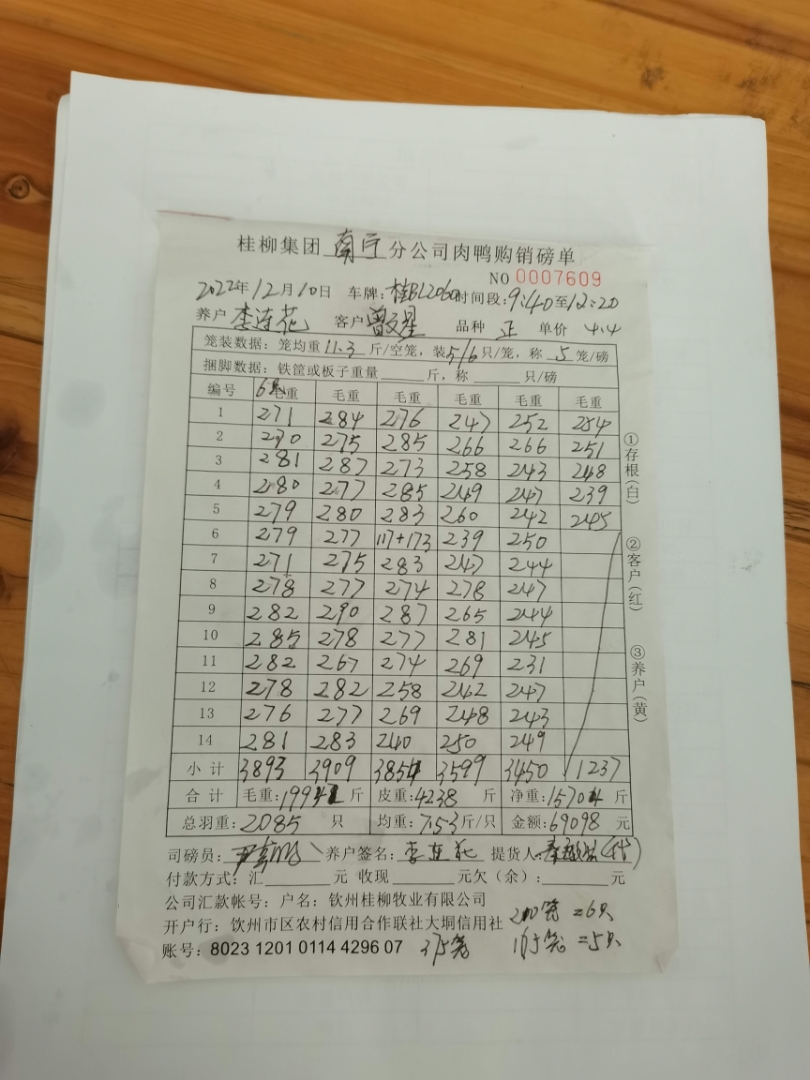 桂柳集团 南宁 分公司肉鸭购销磅单
NO 0007609
2022年12月10日 车牌:桂BL2060 时间段:9:40至12:20
养户 李连花 客户 曾文星 品种 正 单价 4.4
笼装数据: 笼均重 11.3 斤/空笼, 装 5/6 只/笼, 称 5 笼/磅
捆脚数据: 铁筐或板子重量 斤, 称 只/磅
编号 6只 毛重 毛重 毛重 毛重 毛重 毛重
1 271 284 276 247 252 254
2 270 275 285 266 266 251
3 281 287 273 258 243 248
4 280 277 285 249 247 239
5 279 280 283 260 242 245
6 279 277 117+173 239 250
7 271 275 283 247 244
8 278 277 274 278 247
9 282 290 287 265 244
10 285 278 277 281 245
11 282 267 274 269 231
12 278 282 258 242 247
13 276 277 269 248 243
14 281 283 240 250 249
小计 3893 3909 3854 3599 3450 1237
合计 毛重:19942 斤 皮重:4238 斤 净重:15704 斤
总羽重:2085 只 均重:7.53斤/只 金额:69098 元
司磅员: 养户签名: 李连花 提货人: (代)
付款方式:汇 元 收现 元欠(余): 元
公司汇款帐号: 户名: 钦州桂柳牧业有限公司
开户行: 钦州市区农村信用合作联社大垌信用社 210笼=6只
账号: 8023 1201 0114 4296 07 375笼 165笼=5只
①存根(白)
②客户(红)
③养户(黄)